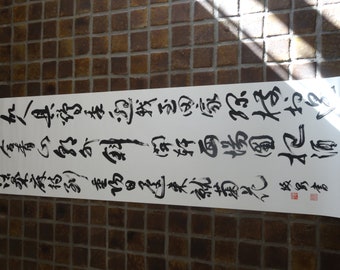 故人具雞黍邀我至田家綠樹村邊
合青山郭外斜開軒面場圃把酒
話桑麻待到重陽日還來就菊花
書